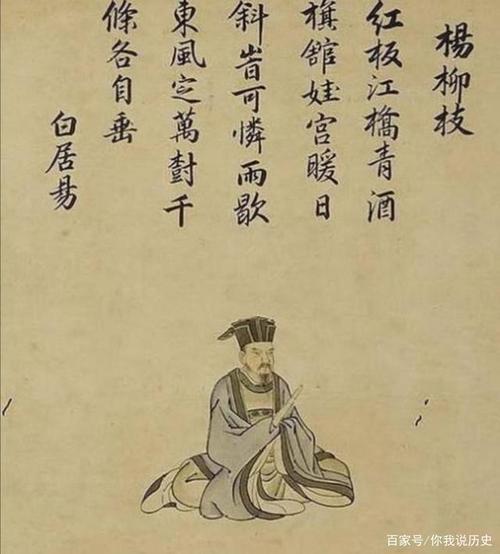 楊柳枝
紅板江橋青酒
旗舘娃宮暖日
斜旹可憐雨歇
東風定萬對千
條各自垂
白居易
百家号/你我说历史